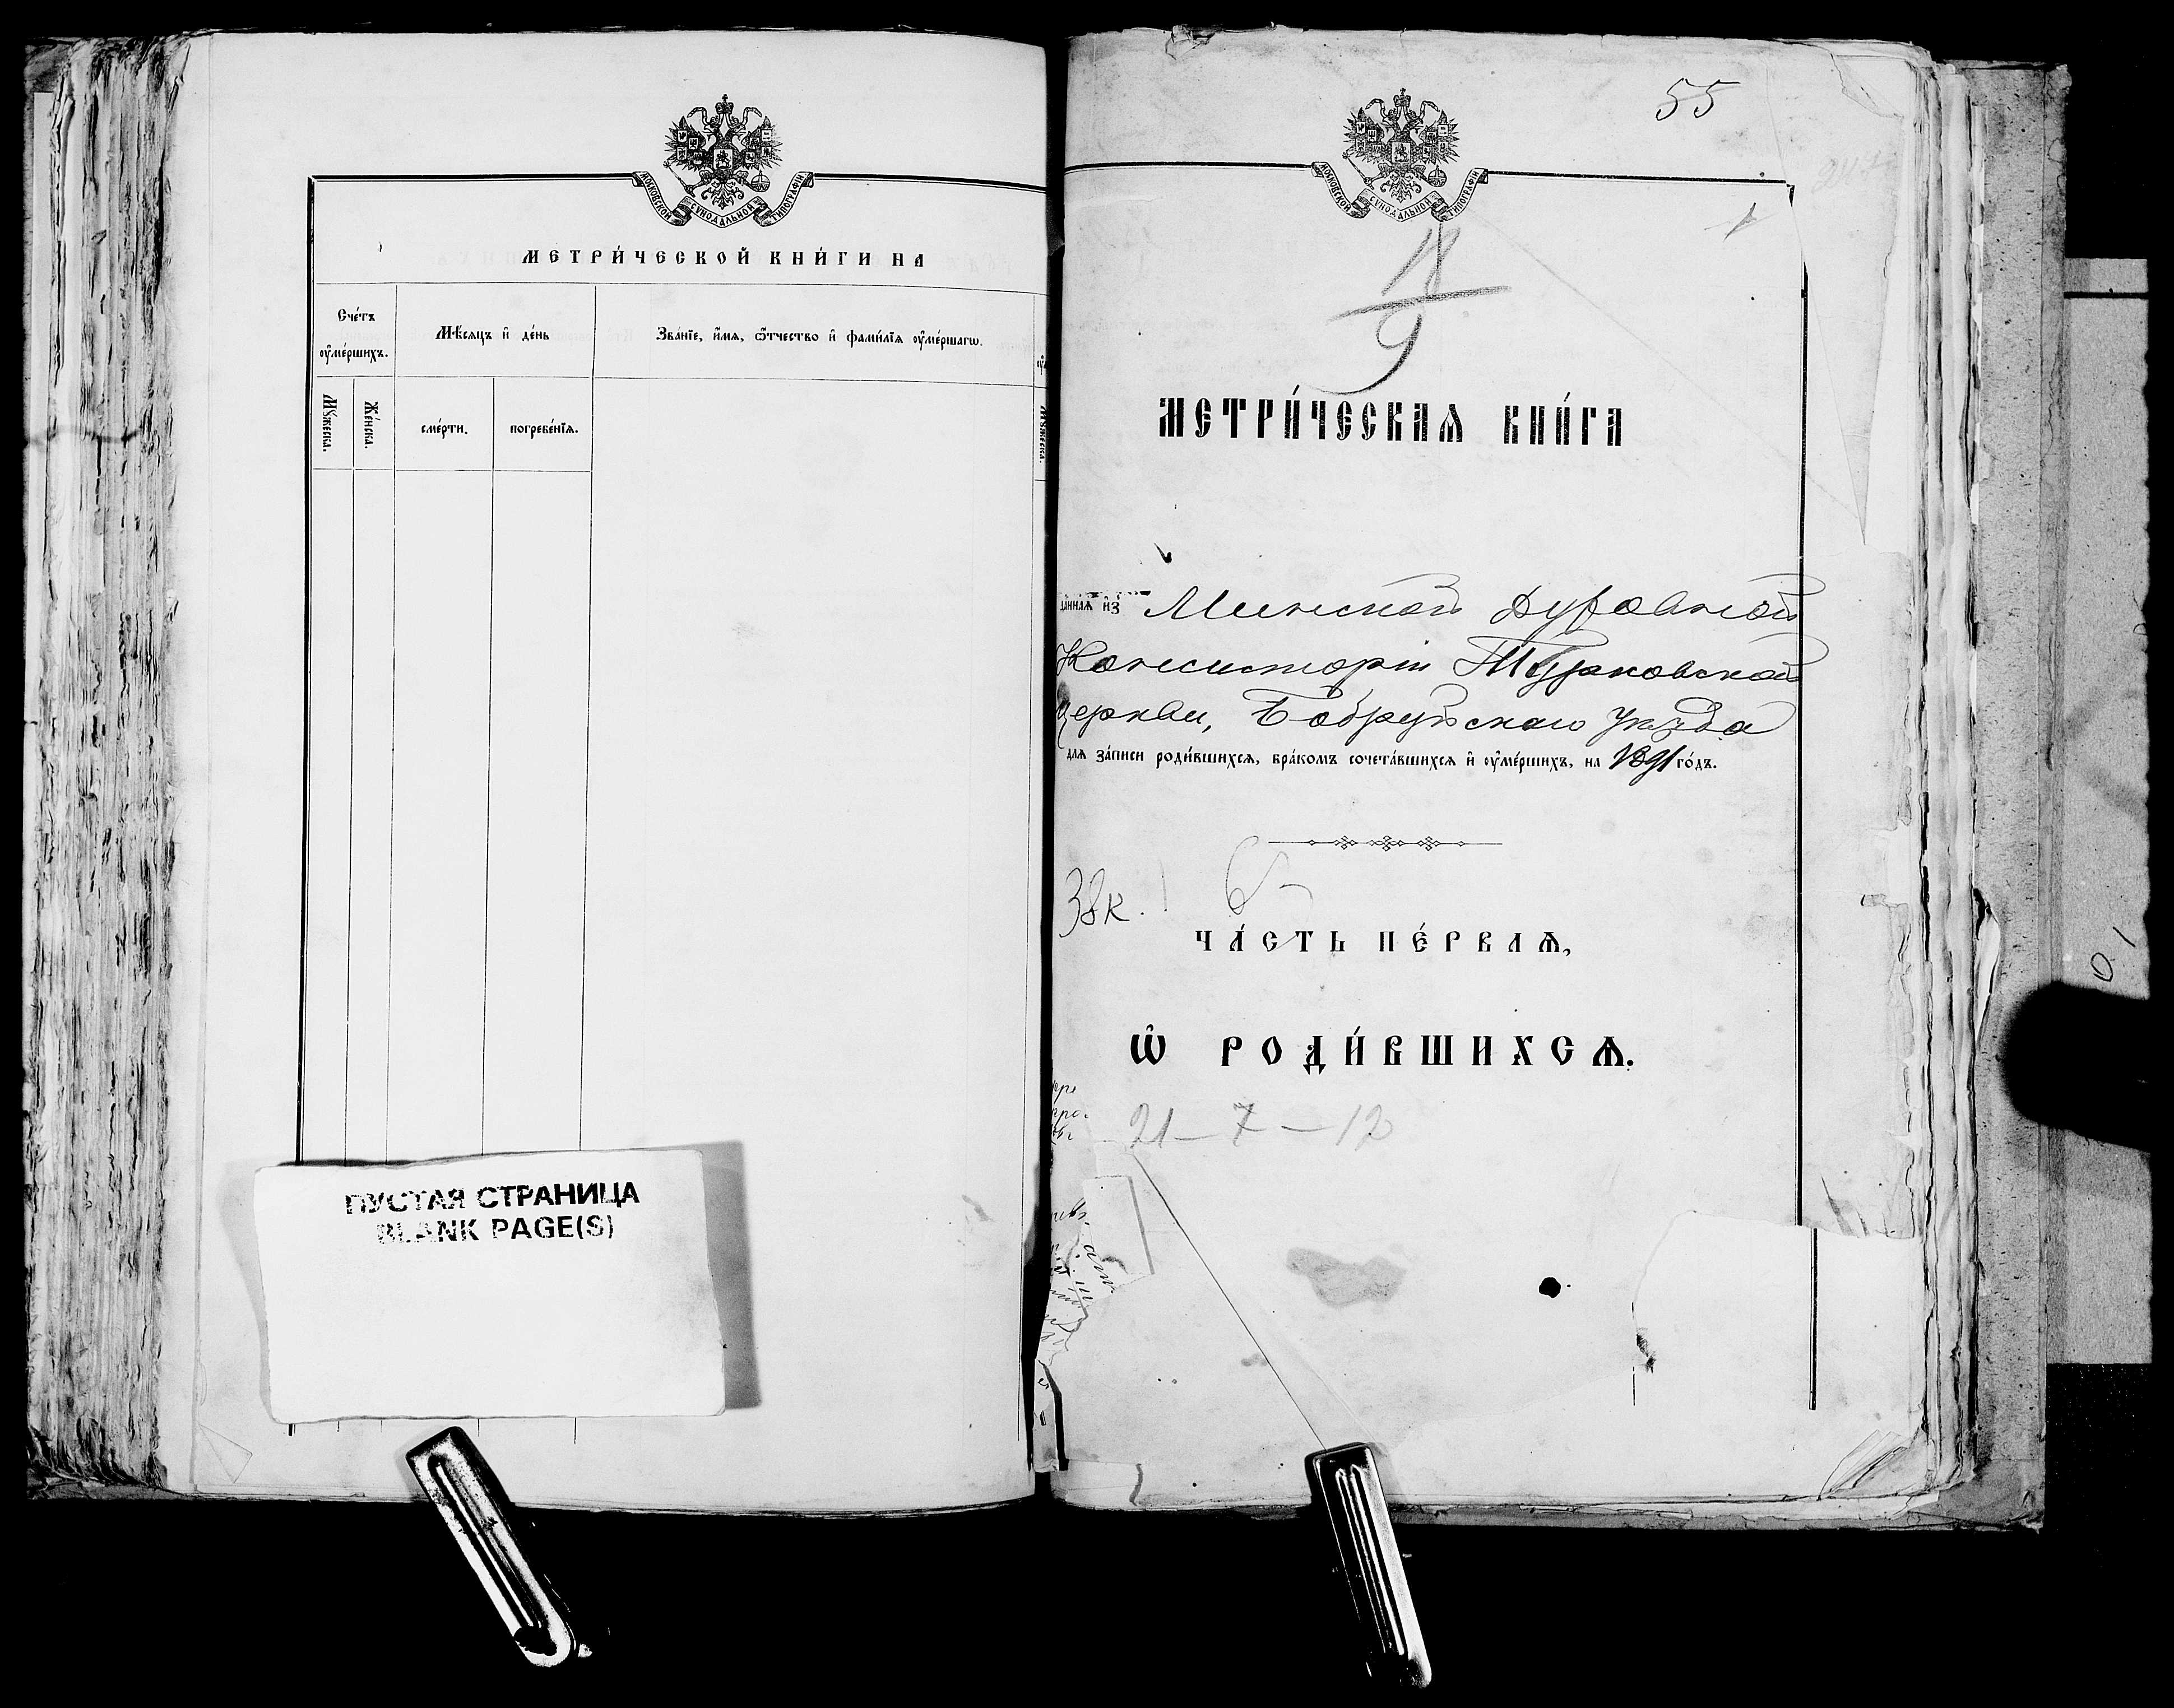 МОСКОВСКОЙ СѴНОДАЛЬНОЙ ТИПОГРАФІИ
МЕТРИ́ЧЕСКОЙ КНИ́ГИ НА
Сче́тъ ѹ҆ме́ршихъ.
Мѣ́сяцъ и҆ де́нь
Зва́нїе, и҆́мя, ѻ҆́тчество и҆ фами́лїя ѹ҆ме́ршагѡ.
Мꙋ́жеска.
Же́нска.
сме́рти.
погребе́нїя.
ПУСТАЯ СТРАНИЦА
BLANK PAGE(S)
55
МОСКОВСКОЙ СѴНОДАЛЬНОЙ ТИПОГРАФІИ
9
МЕТРИ́ЧЕСКАѦ КНИ́ГА
да́ннаѧ и҆з Минской Духовной
Консисторіи Турковской
церкви, Бобруйскаго уѣзда
для за́писи роди́вшихсѧ, бра́комъ сочета́вшихсѧ и҆ ѹ҆ме́ршихъ, на 1891 го́дъ.
38к.
ЧА́СТЬ ПЕ́РВАѦ,
Ѡ҆ РОДИ́ВШИХСѦ.
21 — 7 — 12